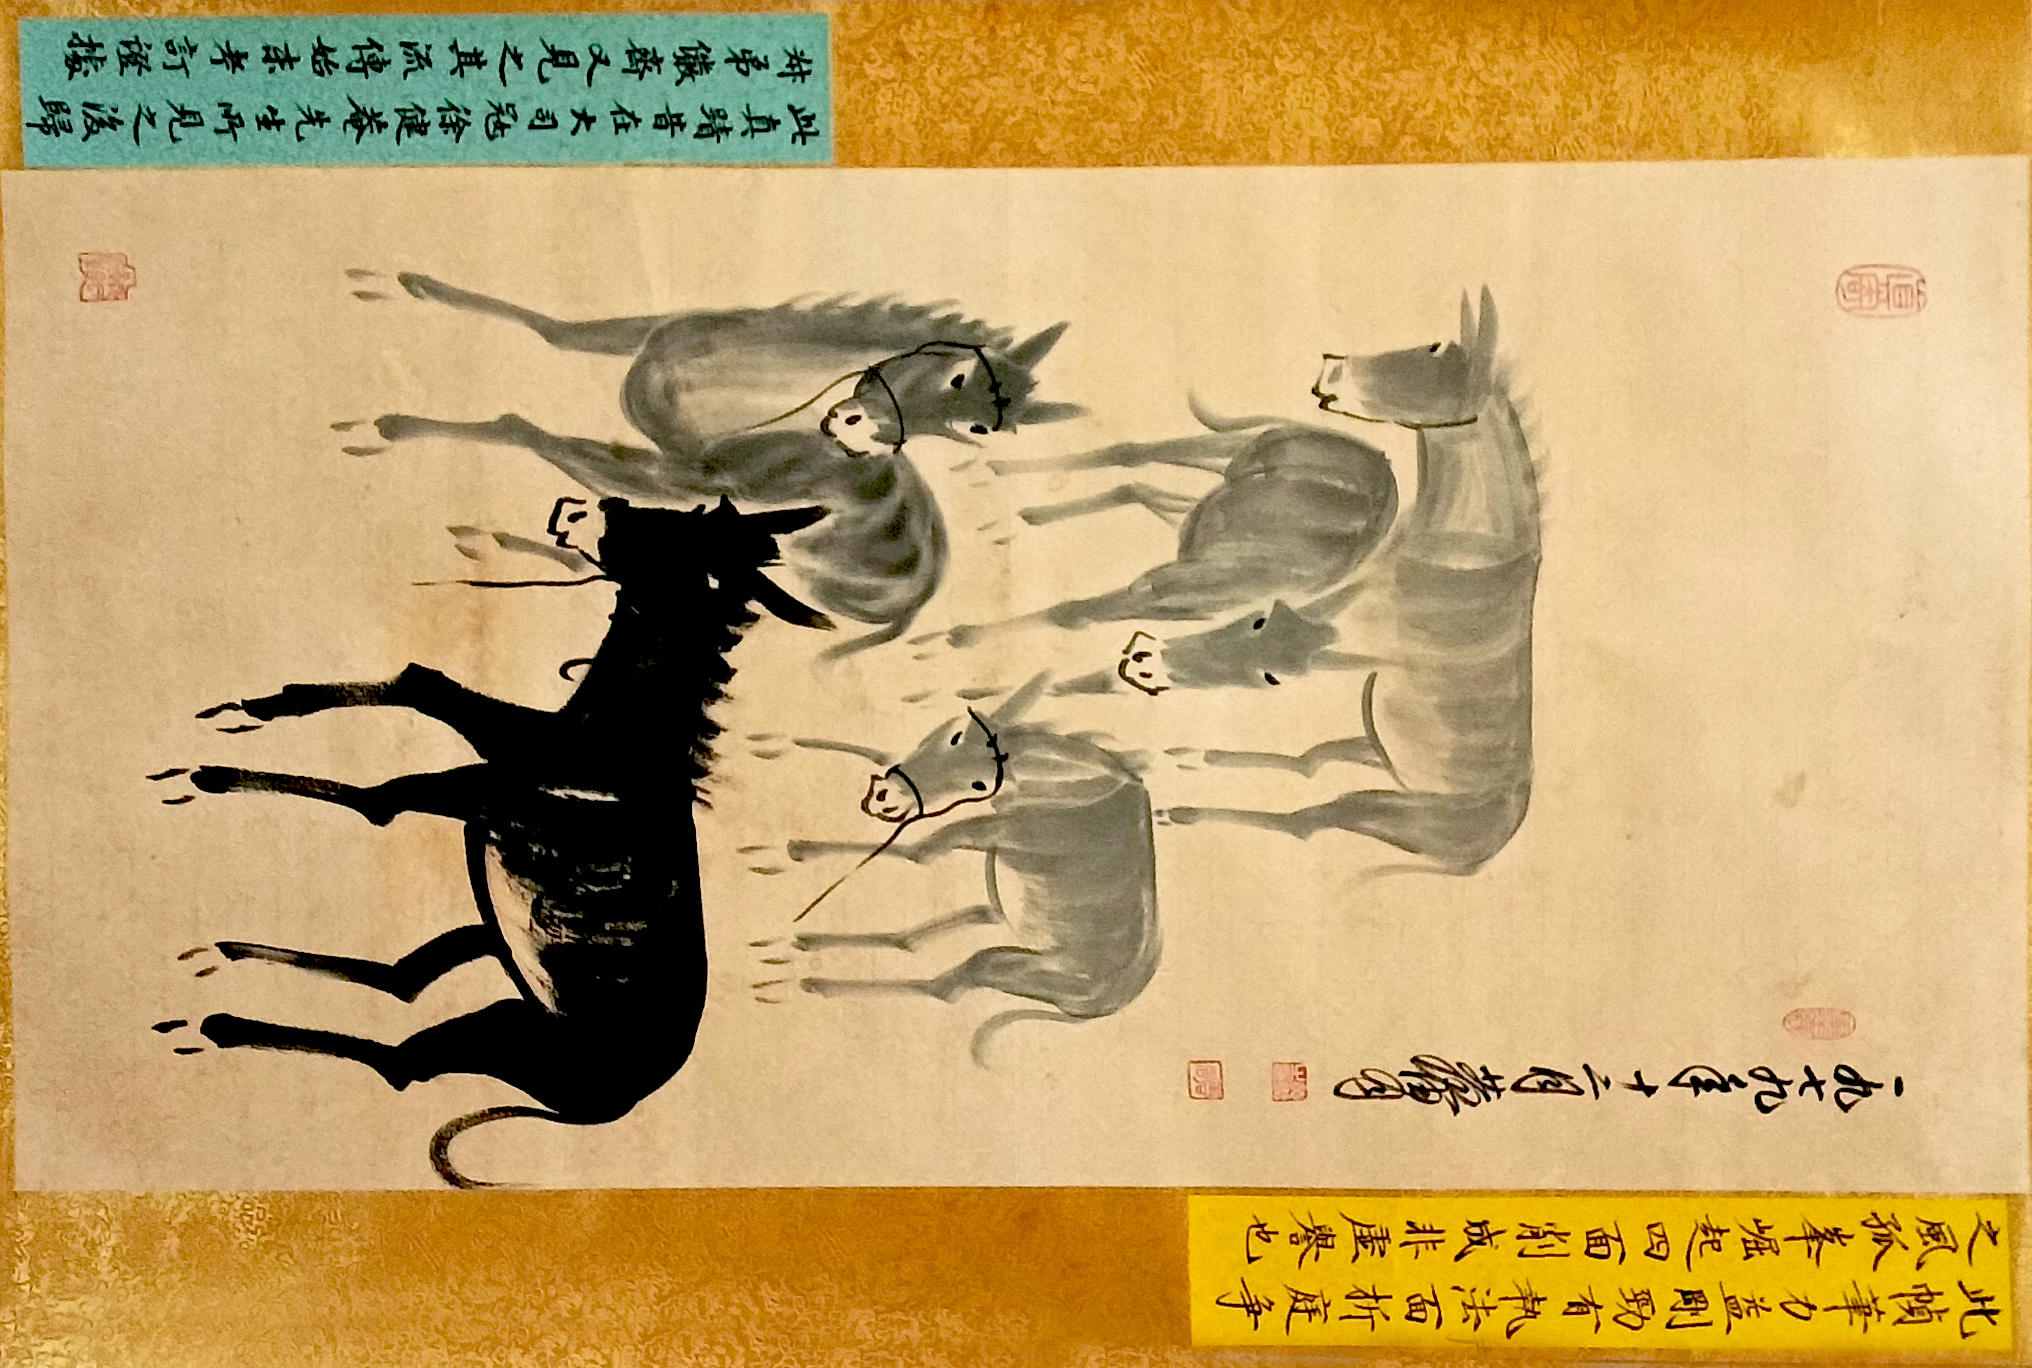 此幀筆力益剛勁有執法面折庭爭
之風孤峯崛起四面削成非虛譽也
一九七九年十二月黃胄
此真蹟昔在大司寇徐健菴先生所見之後歸
弟儼齋又見之其流傳始末考訂證據